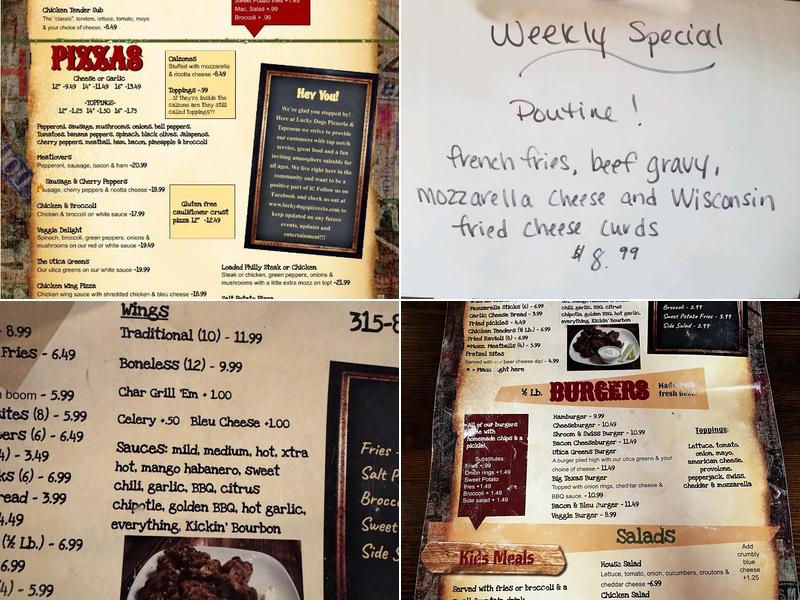 Sweet Potato fries +1.49
Mac. Salad +.99
Broccoli + .99
Chicken Tender Sub
The "classic". tenders, lettuce, tomato, mayo
& your choice of cheese. -8.49
PIZZAS
Cheese or Garlic
12" -9.49 14" -11.49 16" -13.49
-TOPPINGS-
12" -1.25 14" -1.50 16" -1.75
Pepperoni, Sausage, mushrooms, onions, bell peppers,
Tomatoes, banana peppers, spinach, black olives, Jalapenos,
cherry peppers, meatball, ham, bacon, pineapple & broccoli
Meatlovers
Pepperoni, sausage, bacon & ham -20.99
Sausage & Cherry Peppers
Sausage, cherry peppers & ricotta cheese -18.99
Chicken & Broccoli
Chicken & broccoli on white sauce -17.99
Veggie Delight
Spinach, broccoli, green peppers, onions &
mushrooms on our red or white sauce -19.49
The Utica Greens
Our utica greens on white sauce -19.99
Chicken Wing Pizza
Chicken wing sauce with shredded chicken & bleu cheese -18.99
Calzones
Stuffed with mozzarella
& ricotta cheese -8.49
Toppings -.99
...if they're inside the
calzone are they still
called toppings??
Gluten free
cauliflower crust
pizza 12" -12.49
Hey You!
We're glad you stopped by!
Here at Lucky Dogs Pizzeria &
Taproom we strive to provide
our customers with top notch
service, great food and a fun
inviting atmosphere suitable for
all ages. We live right here in the
community and want to be a
positive part of it! Follow us on
Facebook and check us out at
www.luckydogpizzeria.com to
keep updated on any future
events, updates and
entertainment!!!
Loaded Philly Steak or Chicken
Steak or chicken, green peppers, onions &
mushrooms with a little extra mozz on top! -21.99
Salt Potato Pizza
Weekly Special
Poutine!
french fries, beef gravy,
mozzarella cheese and Wisconsin
fried cheese curds
$8.99
- 8.99
Fries - 6.49
boom - 5.99
(8) - 5.99
(6) - 6.49
4) - 3.49
(6) - 6.99
- 3.99
4.49
(½ Lb.) - 6.99
6.99
4) - 5.99
Wings
Traditional (10) - 11.99
Boneless (12) - 9.99
Char Grill 'Em + 1.00
Celery +.50 Bleu Cheese +1.00
Sauces: mild, medium, hot, xtra
hot, mango habanero, sweet
chili, garlic, BBQ, citrus
chipotle, golden BBQ, hot garlic,
everything, Kickin' Bourbon
315-8
Fries -
Salt P
Brocc
Sweet
Side S
Mozzarella Sticks (6) - 6.99
Garlic Cheese Bread - 3.99
Fried pickles - 4.49
Chicken Tenders (½ Lb.) - 6.99
Fried Ravioli (8) - 6.99
*Mozz. Meatballs (4) - 5.99
Pretzel Bites
Served with our beer cheese dip! - 4.99
chipotle, golden BBQ, hot garlic,
everything, Kickin' Bourbon
Broccoli - 2.99
Sweet Potato Fries - 3.99
Side Salad - 2.99
½ Lb. BURGERS
fresh beef!
All of our burgers
homemade chips & a
pickle!
Substitutes:
Fries +.99
Onion rings +1.49
Sweet Potato
fries +1.49
Broccoli + 1.49
Side salad + 1.49
Hamburger - 9.99
Cheeseburger - 10.49
Shroom & Swiss Burger - 10.99
Bacon Cheeseburger - 11.49
Utica Greens Burger
A burger piled high with our utica greens & your
choice of cheese - 11.49
Big Texas Burger
Topped with onion rings, cheddar cheese &
BBQ sauce. - 10.99
Bacon & Bleu Burger - 11.49
Veggie Burger - 8.99
Toppings:
Lettuce, tomato,
onion, mayo,
american cheese,
provolone,
pepperjack, swiss,
cheddar & mozzarella
Kids Meals
Served with fries or broccoli & a
Salads
House Salad
Lettuce, tomato, onion, cucumbers, croutons &
cheddar cheese -6.99
Chicken Salad
Add
crumbly
blue
cheese
+1.25